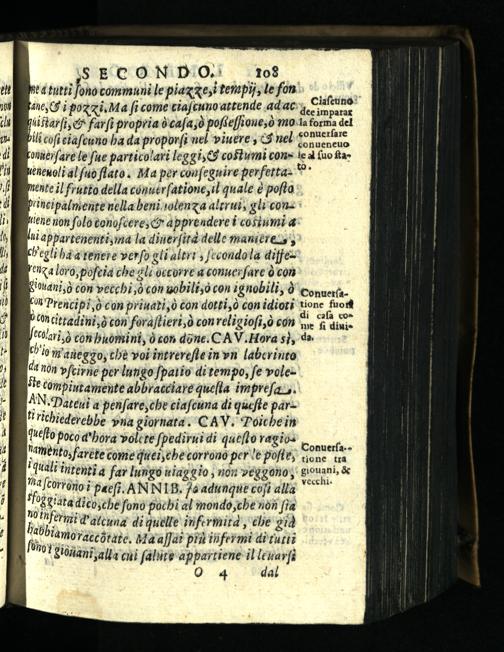 SECONDO. 108
me a tutti sono communi le piazze, i tempij, le fon
tane, & i pozzi. Ma si come ciascuno attende ad ac
quistarsi, & farsi propria ò casa, ò possessione, ò mo
bili cosi ciascuno ha da proporsi nel viuere, & nel
conuersare le sue particolari leggi, & costumi con-
ueneuoli al suo stato. Ma per conseguire perfetta-
mente il frutto della conuersatione, il quale è posto
principalmente nella beniuolenza altrui, gli con-
uiene non solo conoscere, & apprendere i costumi a
lui appartenenti, ma la diuersità delle maniere,
ch'egli ha à tenere verso gli altri, secondo la diffe-
renza loro, poscia che gli occorre a conuersare ò con
giouani, ò con vecchi, ò con nobili, ò con ignobili, ò
con Prencipi, ò con priuati, ò con dotti, ò con idioti
ò con cittadini, ò con forastieri, ò con religiosi, ò con
secolari, ò con huomini, ò con dōne. CAV. Hora sì,
ch'io m'aueggo, che voi intrereste in vn laberinto
da non vscirne per lungo spatio di tempo, se vole-
ste compiutamente abbracciare questa impresa.
AN. Dateui a pensare, che ciascuna di queste par-
ti richiederebbe vna giornata. CAV. Poiche in
questo poco d'hora volete spedirui di questo ragio-
namento, farete come quei, che corrono per le poste,
i quali intenti a far lungo uiaggio, non veggono,
ma scorrono i paesi. ANNIB. Io adunque cosi alla
sfoggiata dico, che sono pochi al mondo, che non sia
no infermi d'alcuna di quelle infermità, che già
habbiamo raccōtate. Ma assai più infermi di tutti
sono i giouani, alla cui salute appartiene il leuarsi
O 4 dal
Ciascuno
dee imparar
la forma del
conuersare
conueneuo
le al suo sta-
to.
Conuersa-
tione fuori
di casa co-
me si diui-
da.
Conuersa-
tione tra
giouani, &
vecchi.